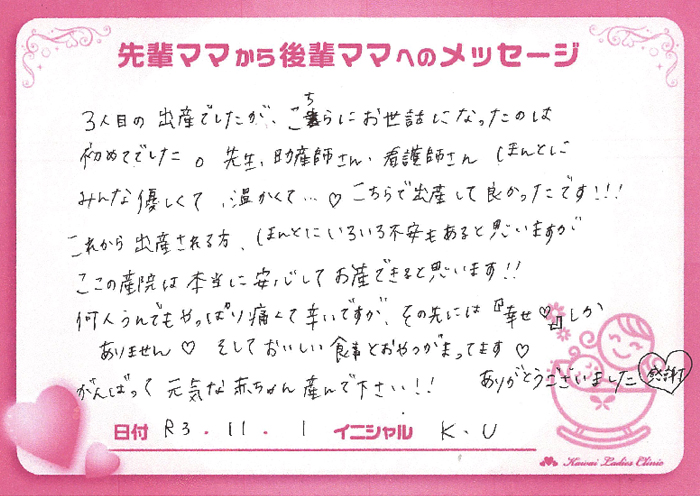 先輩ママから後輩ママへのメッセージ
3人目の出産でしたが、こちらにお世話になったのは
初めてでした。先生、助産師さん、看護師さん ほんとに
みんな優しくて、温かくて…♡こちらで出産して良かったです!!!
これから出産される方、ほんとにいろいろ不安もあると思いますが
ここの産院は本当に安心してお産できると思います!!
何人うんでもやっぱり痛くて辛いですが、その先には『幸せ♡』しか
ありません♡ そしておいしい食事とおやつがまってます♡
がんばって元気な赤ちゃん産んで下さい!! ありがとうございました 感謝
日付 R3.11.1 イニシャル K.U
Kawai Ladies Clinic